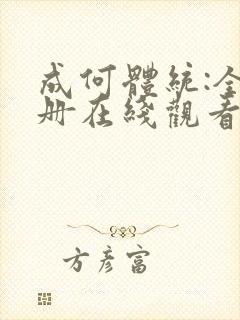 成何體統:全
册在綫觀看
方彦富